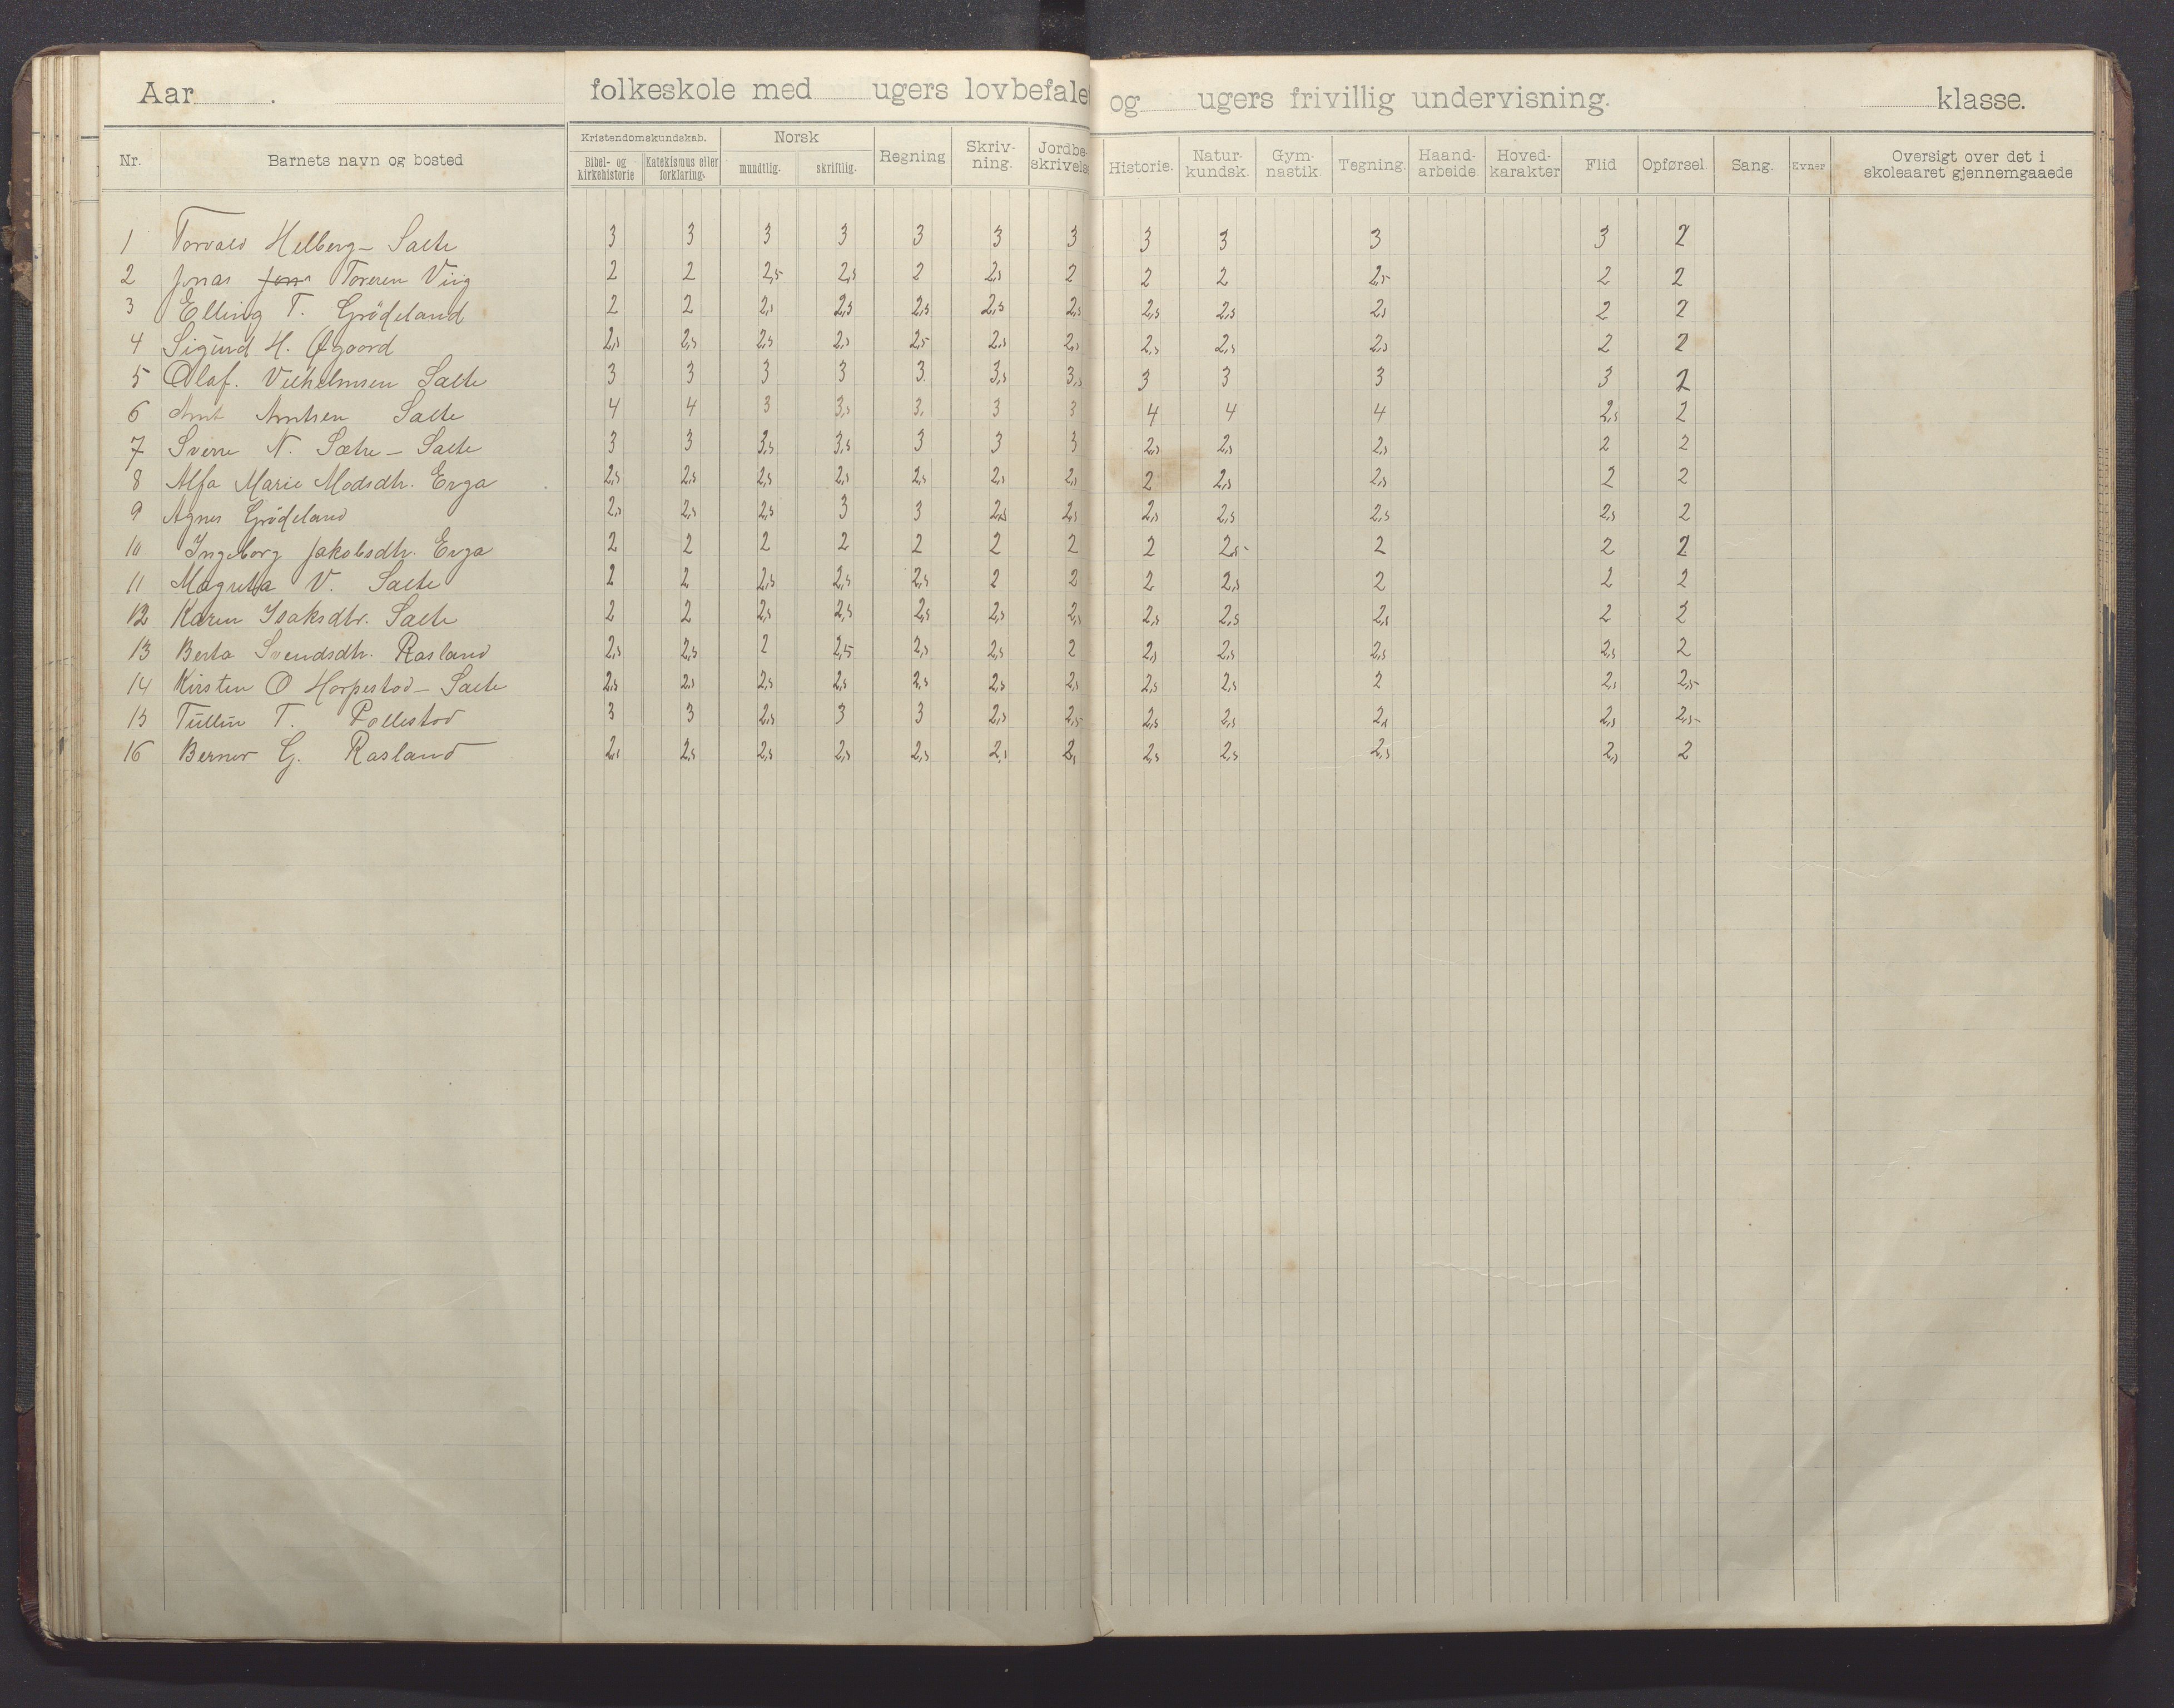 Aar . folkeskole med ugers lovbefalet og ugers frivillig undervisning. klasse.
Nr. Barnets navn og bosted Kristendomskundskab. Bibel- og Kirkehistorie Katekismus eller forklaring. Norsk mundtlig. skriftlig. Regning Skriv-ning. Jordbe-skrivelse Historie. Natur-kundsk. Gym-nastik. Tegning. Haand-arbeide. Hoved-karakter Flid Opførsel. Sang. Evner Oversigt over det i skoleaaret gjennemgaaede
1 Torvald Helberg - Salte 3 3 3 3 3 3 3 3 3 3 3 2
2 Jonas Toresen Vig 2 2 2,5 2,5 2 2,5 2 2 2 2,5 2 2
3 Elling T. Grödeland 2 2 2,5 2,5 2,5 2,5 2,5 2,5 2,5 2,5 2 2
4 Sigurd H. Øgaard 2,5 2,5 2,5 2,5 2,5 2,5 2,5 2,5 2,5 2,5 2 2
5 Olaf. Vilhelmsen Salte 3 3 3 3 3 3,5 3,5 3 3 3 3 2
6 Arnt Arntsen Salte 4 4 3 3,5 3. 3 3 4 4 4 2,5 2
7 Sverre N. Sætre - Salte 3 3 3,5 3,5 3 3 3 2,5 2,5 2,5 2 2
8 Alfa Marie Madsdtr. Erga 2,5 2,5 2,5 2,5 2,5 2,5 2,5 2 2,5 2,5 2 2
9 Agnes Grödeland 2,5 2,5 2,5 3 3 2,5 2,5 2,5 2,5 2,5 2,5 2
10 Ingeborg Jakobsdtr. Erga 2 2 2 2 2 2 2 2 2,5 2 2 2
11 Magreta V. Salte 2 2 2,5 2,5 2,5 2 2 2 2,5 2 2 2
12 Karen Isaksdtr. Salte 2 2 2,5 2,5 2,5 2,5 2,5 2,5 2,5 2,5 2 2
13 Berta Svendsdtr. Rasland 2,5 2,5 2 2,5 2,5 2,5 2 2,5 2,5 2,5 2,5 2
14 Kirsten O Horpestad - Salte 2,5 2,5 2,5 2,5 2,5 2,5 2,5 2,5 2,5 2 2,5 2,5
15 Tullin T. Pollestad 3 3 2,5 3 3 2,5 2,5 2,5 2,5 2,5 2,5 2,5
16 Berner G. Rasland 2,5 2,5 2,5 2,5 2,5 2,5 2,5 2,5 2,5 2,5 2,5 2